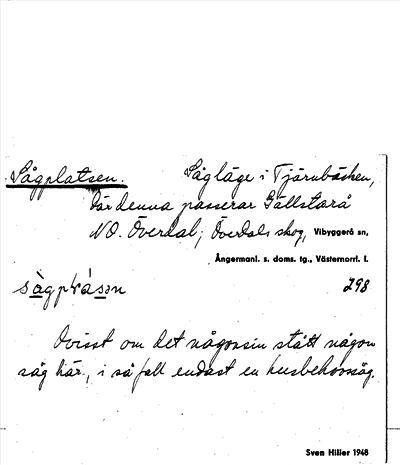 Sågplatsen. Sågläge i Tjärnbäcken,
där denna passerar Gällstarå
NO. Överdal; Överdals skog, Vibyggerå sn,
Ångermanl. s. doms. tg., Västernorrl. l.
298
Ovisst om det någonsin stått någon
såg här, i så fall endast en husbehovssåg.
Sven Hiller 1948